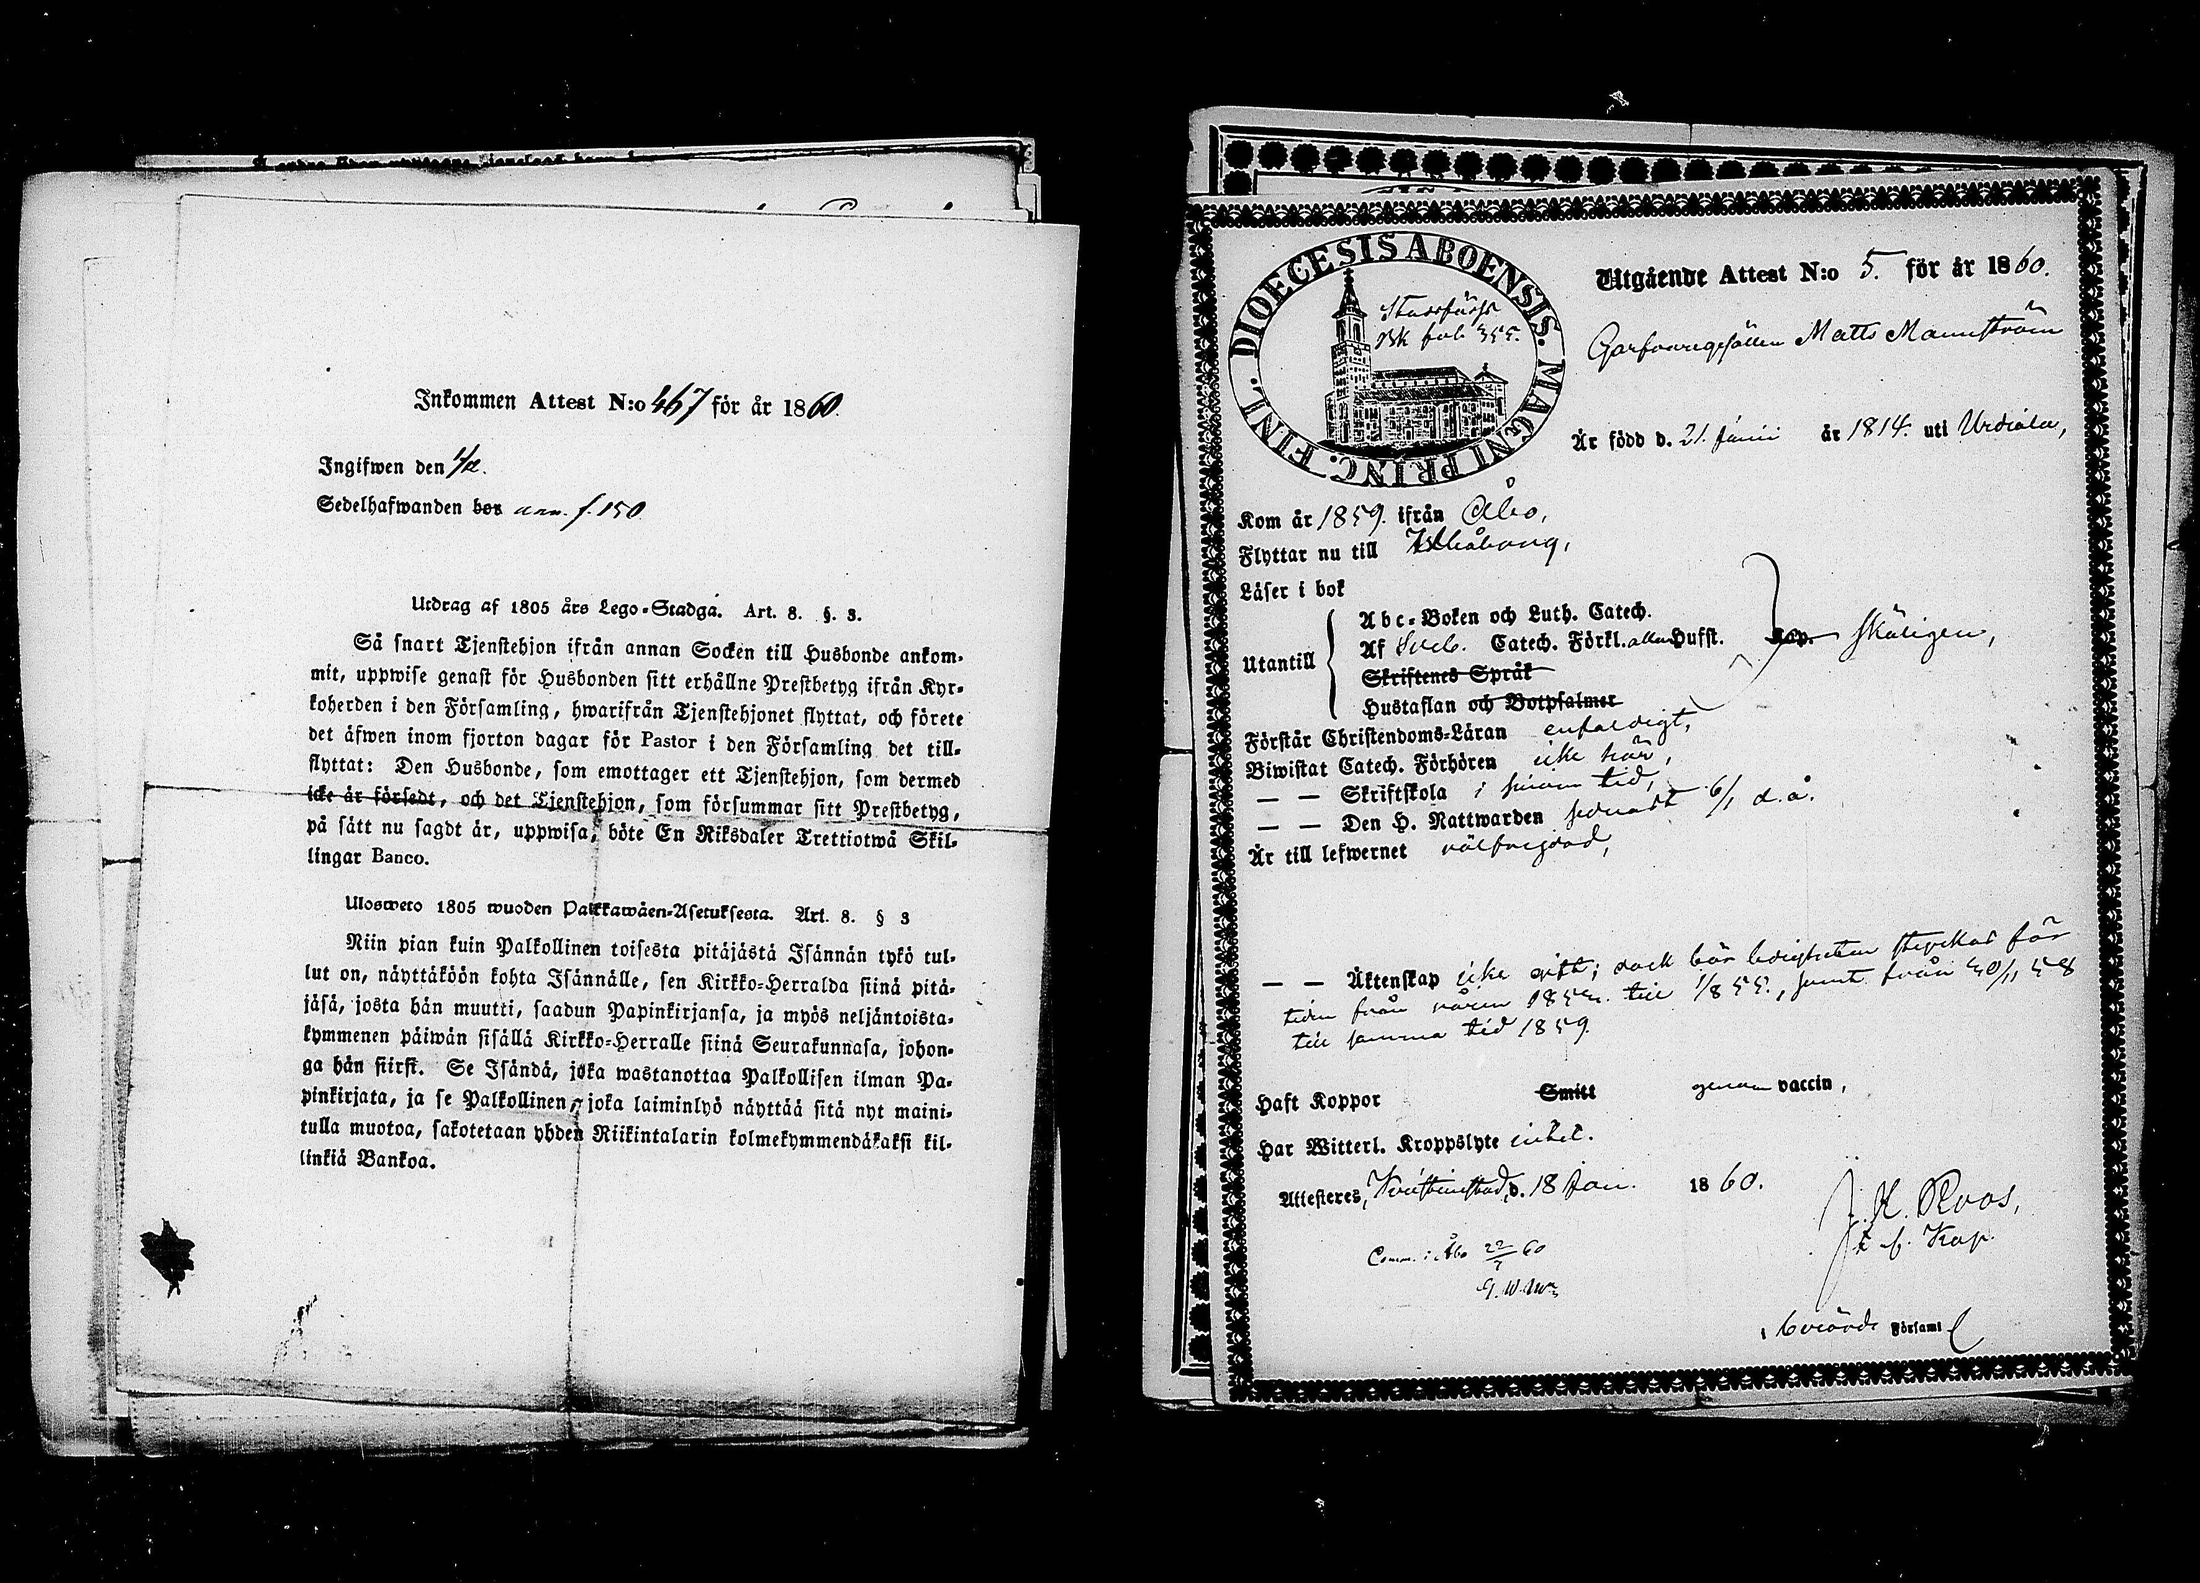 Inkommen Attest N:o 467 för år 1860.
Ingifwen den
Sedelhafwanden bor ann. f. 150
Utdrag af 1805 års Lego-Stadga. Art. 8. §. 3.
Så snart Tjenstehjon ifrån annan Socken till Husbonde ankom-
mit, uppwise genast för Husbonden sitt erhållne Prestbetyg ifrån Kyr-
koherden i den Församling, hwarifrån Tjenstehjonet flyttat, och förete
det äfwen inom fjorton dagar för Pastor i den Församling det till-
flyttat: Den Husbonde, som emottager ett Tjenstehjon, som dermed
icke är försedt, och det Tjenstehjon, som försummar sitt Prestbetyg,
på sätt nu sagdt är, uppwisa, böte En Riksdaler Trettiotwå Skil-
lingar Banco.
Ulosweto 1805 wuoden Palkkawäen-Asetuksesta. Art. 8. § 3
Niin pian kuin Palkollinen toisesta pitäjästä Isännän tykö tul-
lut on, näyttäköön kohta Isännälle, sen Kirkko-Herralda siinä pitä-
jäsä, josta hän muutti, saadun Papinkirjansa, ja myös neljäntoista-
kymmenen päiwän sisällä Kirkko-Herralle siinä Seurakunnasa, johon-
ga hän siirsi. Se Isändä, joka wastanottaa Palkollisen ilman Pa-
pinkirjata, ja se Palkollinen, joka laiminlyö näyttää sitä nyt maini-
tulla muotoa, sakotetaan yhden Riikintalarin kolmekymmendäkaksi kil-
linkiä Bankoa.
DIOECESIS ABOENSIS. MAGNI PRINC. FINL.
Bk fol. 355.
Utgående Attest N:o 5. för år 1860.
Garfvaregesällen Matts Mannström
Är född d. 21. Junii år 1814. uti Urdiala,
Kom år 1859. ifrån Åbo,
Flyttar nu till
Läser i bok
Utantill
Abc-Boken och Luth. Catech.
Af Sveb. Catech. Förkl. allm. Hufst. Kap. skäligen,
Skriftenes Språk
Hustaflan och Botpsalmer
Förstår Christendoms-Läran enfaldigt,
Biwistat Catech. Förhören icke här,
— — Skriftskola i sinom tid,
— — Den H. Nattwarden senast 6/1 d. å.
Är till lefwernet välfrejdad,
— — Äktenskap icke gift; dock bör ledigheten styrkas för
tiden från våren till 1/8 55., samt från 30/11 58
till samma tid 1859.
Haft Koppor Smitt genom vaccin,
Har Witterl. Kroppslyte intet.
Attesteres, Kristinestad, d. 18 Jan. 1860.
J. K. Roos,
t. f. Kap.
Comm. i Åbo 22/7 60
Församl